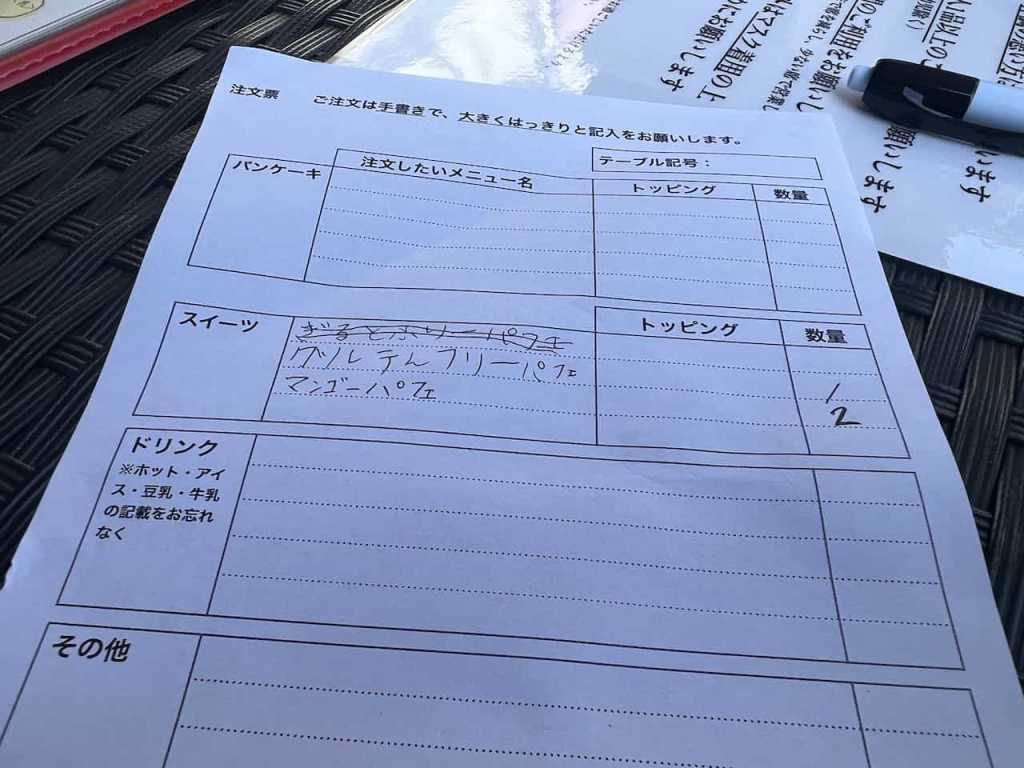 注文票 ご注文は手書きで、大きくはっきりと記入をお願いします。
テーブル記号：
パンケーキ 注文したいメニュー名 トッピング 数量
スイーツ トッピング 数量
ぎるとふりーパフェ
グルテんフリーパフェ 1
マンゴーパフェ 2
ドリンク
※ホット・アイ
ス・豆乳・牛乳
の記載をお忘れ
なく
その他
はマスク着用の上
にお願いします
のご利用をお願いし
人1品以上の
願いします
います